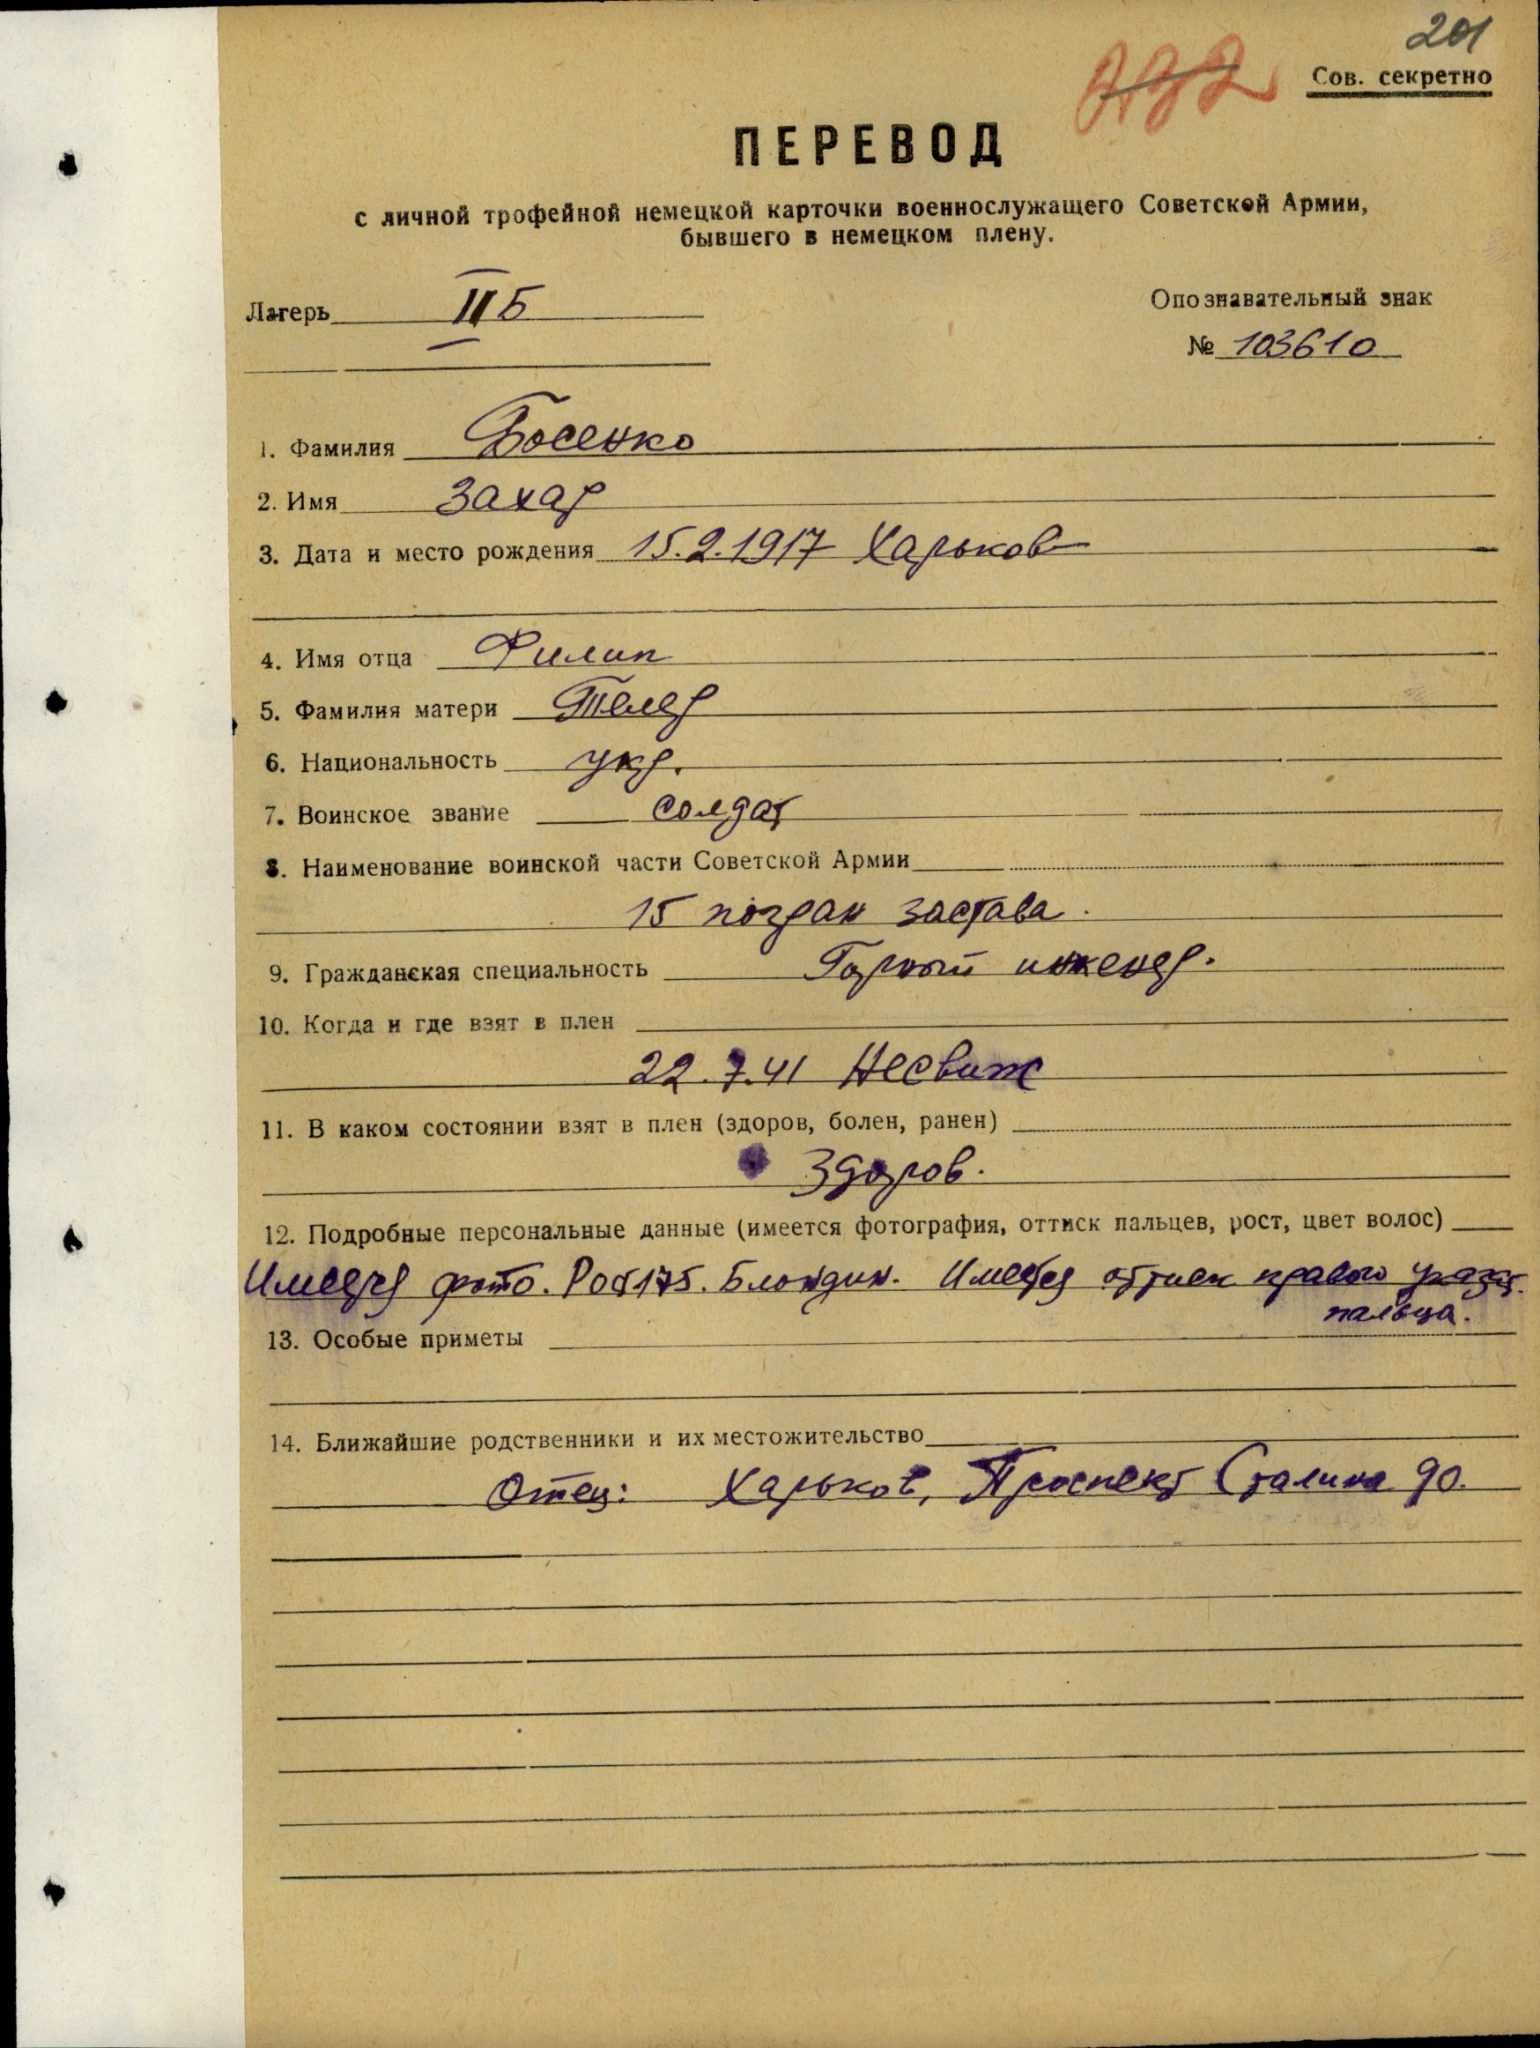 201
Сов. секретно
ПЕРЕВОД
с личной трофейной немецкой карточки военнослужащего Советской Армии,
бывшего в немецком плену.
Лагерь II Б
Опознавательный знак
№ 103610
1. Фамилия Босенко
2. Имя Захар
3. Дата и место рождения 15.2.1917 Харьков
4. Имя отца Филип
5. Фамилия матери
6. Национальность укр.
7. Воинское звание солдат
8. Наименование воинской части Советской Армии
15 погран застава.
9. Гражданская специальность Горный инженер.
10. Когда и где взят в плен
22.7.41 Несвиж
11. В каком состоянии взят в плен (здоров, болен, ранен)
Здоров.
12. Подробные персональные данные (имеется фотография, оттиск пальцев, рост, цвет волос)
Имеется фото. Рост 175. Блондин. Имеется оттиск правого указат.
пальца.
13. Особые приметы
14. Ближайшие родственники и их местожительство
Отец: Харьков, Проспект Сталина 90.